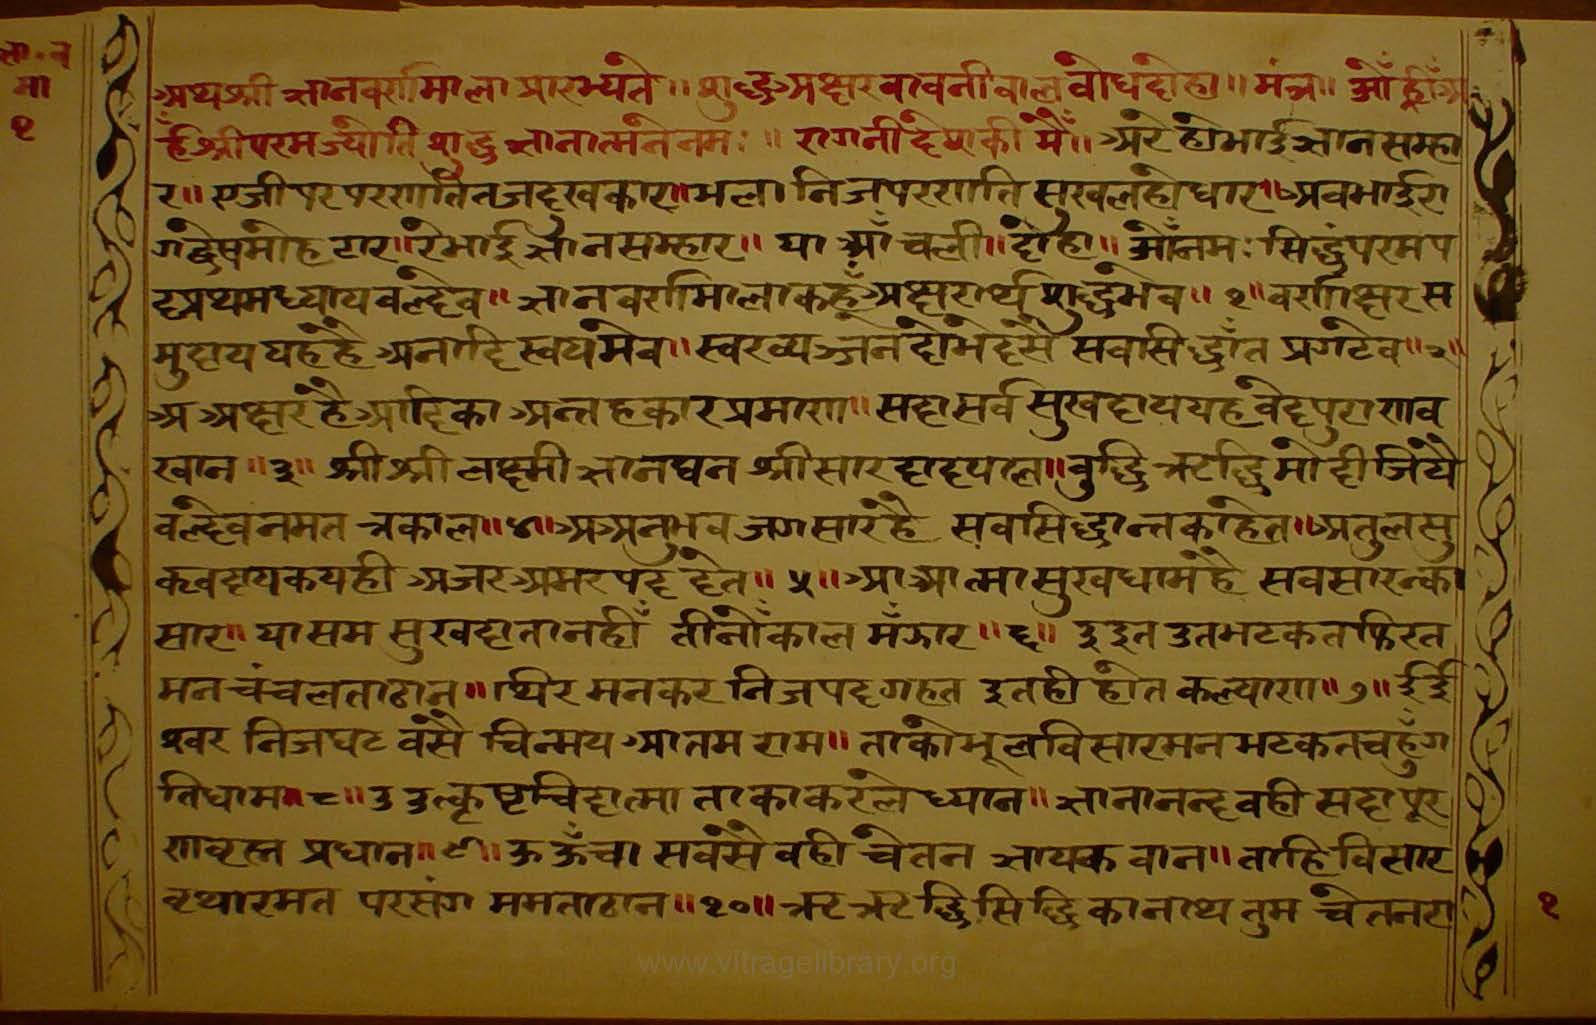 ज्ञा.व
मा
१
अथ श्री ज्ञानवर्णमाला प्रारभ्यते ॥ शुद्ध अक्षर बावनी बाल बोध दोहा ॥ मंत्र ॥ ओँ ह्रीँ अ
र्हँ श्री परम ज्योति शुद्ध ज्ञानात्मने नमः ॥ रागनी देषकी मेँ ॥ अरे हो भाई ज्ञान सम्हा
र ॥ एजी पर परणति तज दुखकार ॥ भला निज परणति सुख लहो धार ॥ अव भाई रा
ग द्वेष मोह टार ॥ रे भाई ज्ञान सम्हार ॥ या आँ चली ॥ दोहा ॥ ओँ नमः सिद्धं परम प
द प्रथम ध्याय वल्देव ॥ ज्ञान वर्णमाला कहूँ अक्षरार्थ शुद्धमेव ॥ १ ॥ वर्णाक्षर स
मुदाय यह है अनादि स्वयमेव ॥ स्वर व्यञ्जन दो भेद से सव सिद्धाँत प्रगटेव ॥ २ ॥
अ अक्षर है आदि का अन्त हकार प्रमाण ॥ सदा सर्व सुखदाय यह वेद पुराण व
खान ॥ ३ ॥ श्री श्री लक्ष्मी ज्ञान घन श्री सारदा दयाल ॥ वुद्धि ऋद्धि मो दीजिये
वल्देव नमत त्रकाल ॥ ४ ॥ अ अनुभव जग सार है सव सिद्धान्त का हेत ॥ अतुल सु
क्ख दायक यही अजर अमर पद देत ॥ ५ ॥ आ आत्मा सुख धाम है सव सारन्का
सार ॥ या सम सुख दाता नहीँ तीनोँ काल मँझार ॥ ६ ॥ इ इत उत भटकत फिरत
मन चंचलता ठान ॥ थिर मन कर निज पद गहत इतही होत कल्याण ॥ ७ ॥ ई ई
श्वर निज घट वसे चिन्मय आतम राम ॥ ताको मूल विसार मन भटकत चहुँ ग
ति धाम ॥ ८ ॥ उ उत्कृष्ट चिदात्मा ता का करले ध्यान ॥ ज्ञानानन्द वही सदा पूर
ण वृह्म प्रधान ॥ ९ ॥ ऊ ऊँचा सवसे वही चेतन ज्ञायक वान ॥ ताहि विसार
वृथा रमत पर संग ममता ठान ॥ १० ॥ ऋ ऋद्धि सिद्धि का नाथ तुम चेतन रा
१
www.vitragelibrary.org